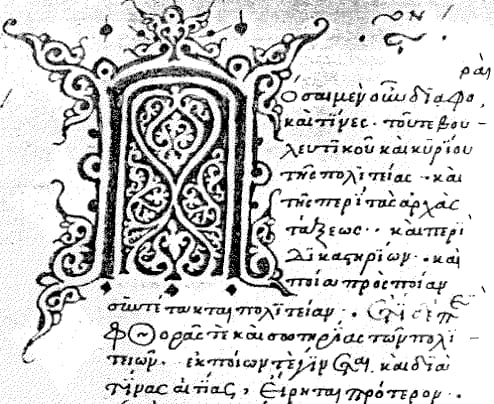 Πόσαι μὲν οὖν διαφοραὶ
καὶ τίνες· τοῦ τε βου-
λευτικοῦ καὶ κυρίου
τῆς πολιτείας· καὶ
τῆς περὶ τὰς ἀρχὰς
τάξεως·· καὶ περὶ
δικαστηρίων· καὶ
ποία πρὸς ποίαν
συντέτακται πολιτείαν·
φθορᾶς τε καὶ σωτηρίας τῶν πολι-
τειῶν· ἐκ ποίων τε γίνεται καὶ διὰ
τίνας αἰτίας, εἴρηται πρότερον·